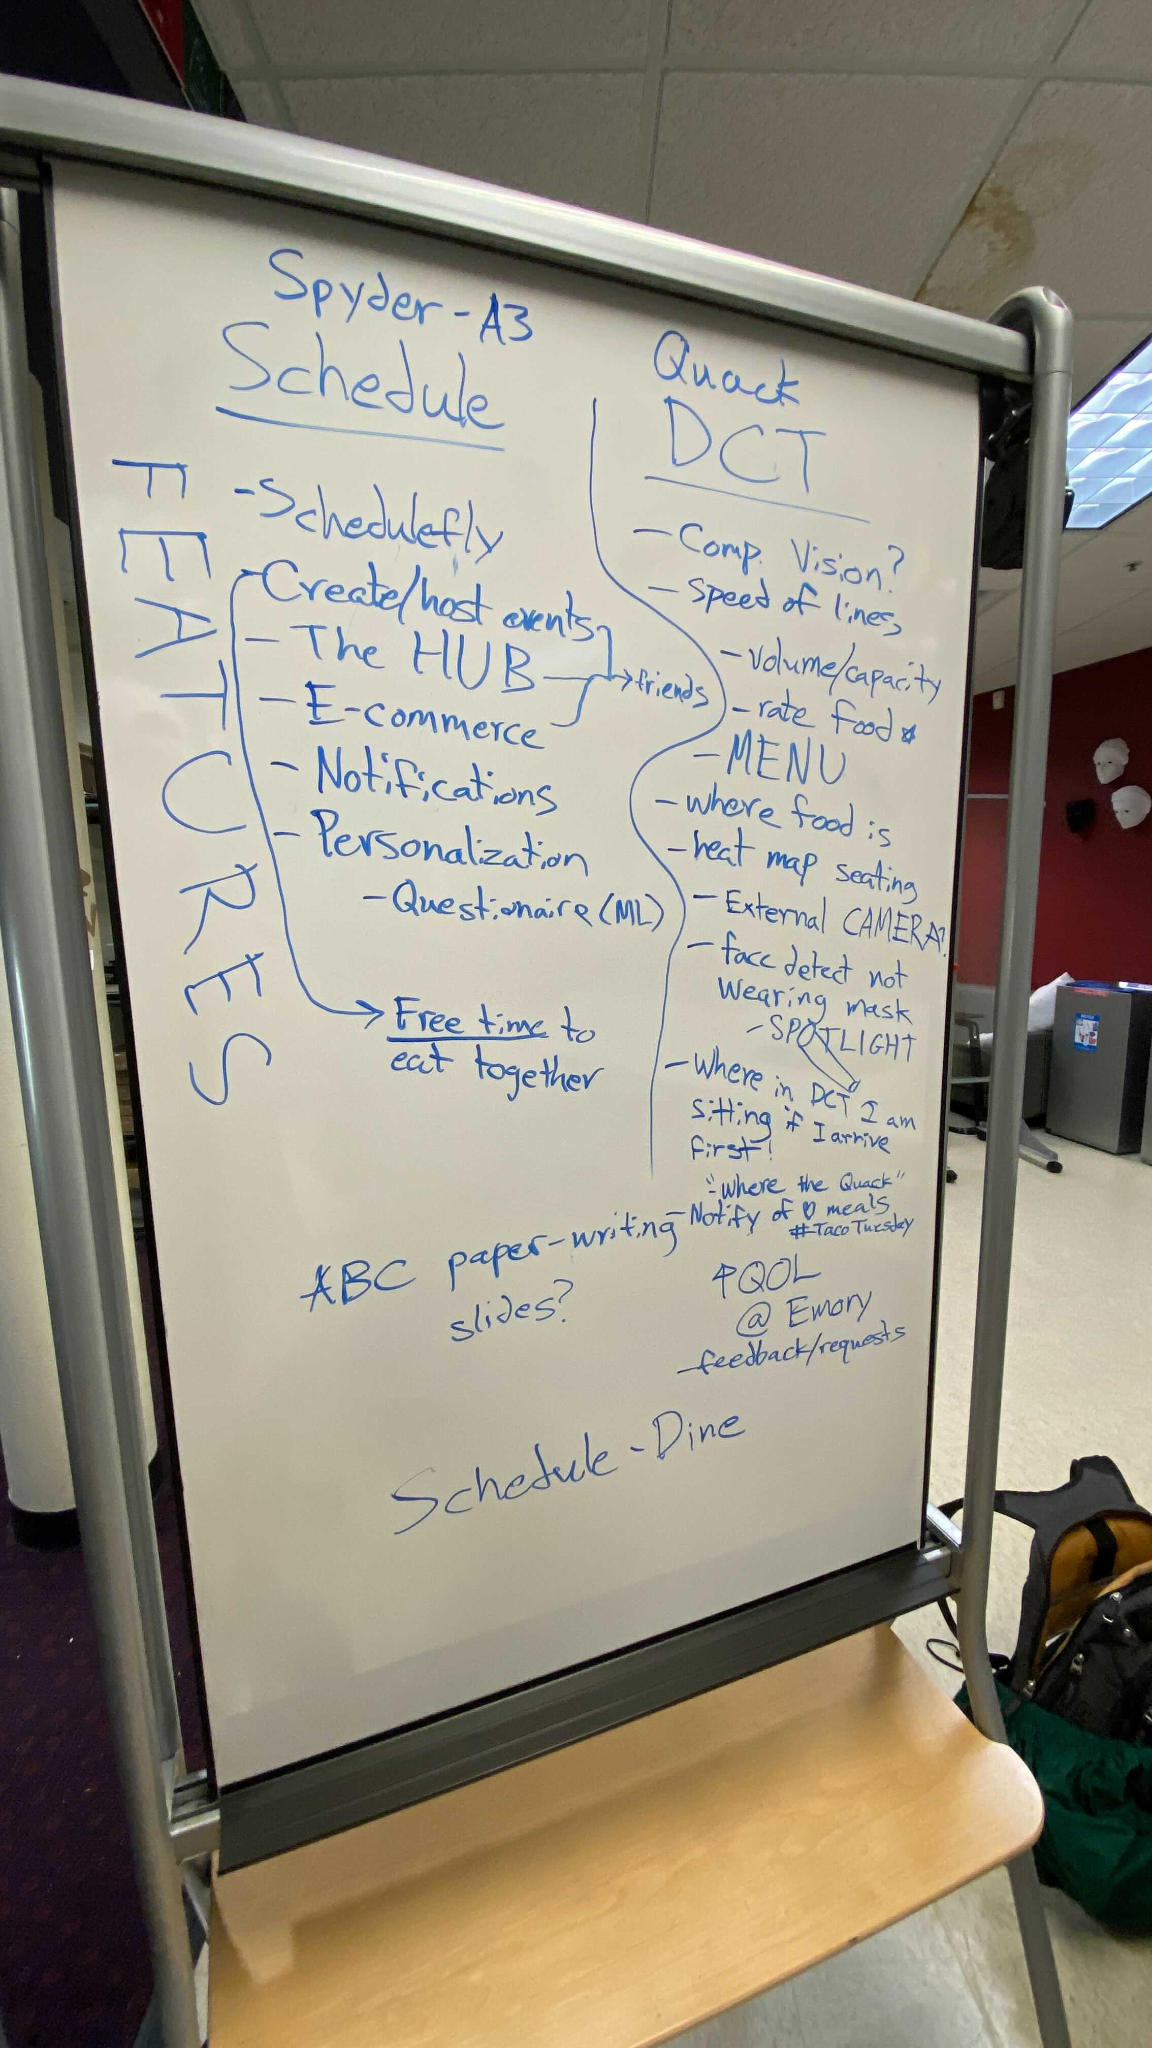 Spyder-A3
Schedule
FEATURES
-Schedulefly
-Create/host events
- The HUB
→friends
- E-commerce
- Notifications
- Personalization
- Questionaire (ML)
→ Free time to
eat together
Quack
DCT
- Comp. Vision?
- speed of lines
- volume/capacity
- rate food
- MENU
- where food is
- heat map seating
- External CAMERA?
- face detect not
wearing mask
- SPOTLIGHT
- Where in DCT I am
sitting if I arrive
first!
- "Where the Quack"
- Notify of ♡ meals
#TacoTuesday
↑QOL
@ Emory
- feedback/requests
ABC paper-writing
slides?
Schedule - Dine